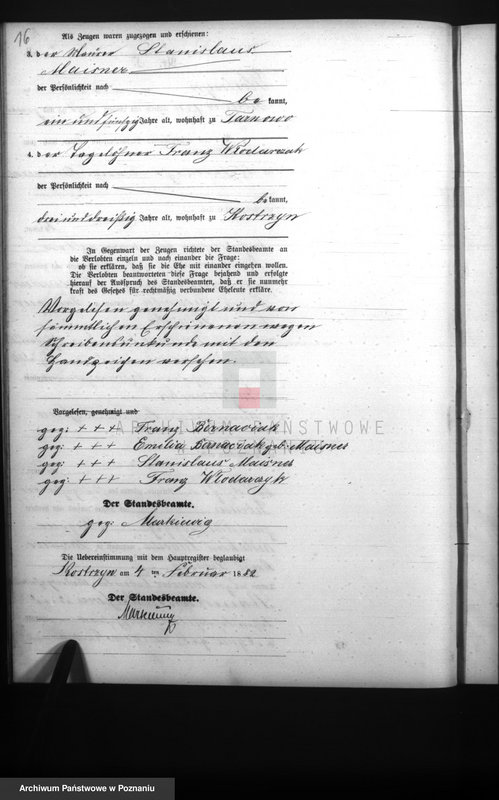 16
Als Zeugen waren zugezogen und erschienen:
3. der Maurer Stanislaus
Maisner
der Persönlichkeit nach
be kannt,
ein und fünfzig Jahre alt, wohnhaft zu Tarnowo
4. der Tagelöhner Franz Wlodarczak
der Persönlichkeit nach
be kannt,
drei und dreißig Jahre alt, wohnhaft zu Kostrzyn
In Gegenwart der Zeugen richtete der Standesbeamte an
die Verlobten einzeln und nach einander die Frage:
ob sie erklären, daß sie die Ehe mit einander eingehen wollen.
Die Verlobten beantworteten diese Frage bejahend und erfolgte
hierauf der Ausspruch des Standesbeamten, daß er sie nunmehr
kraft des Gesetzes für rechtmäßig verbundene Eheleute erkläre.
Vorgelesen genehmigt und von
sämmtlichen Erschienenen wegen
Schreibensunkunde mit den
Handzeichen versehen.
Vorgelesen, genehmigt und
gez: +++ Franz
gez: +++ Emilia geb: Maisner
gez: +++ Stanislaus Maisner
gez: +++ Franz Wlodarczyk
Der Standesbeamte.
gez:
Die Uebereinstimmung mit dem Hauptregister beglaubigt
Kostrzyn am 4 ten Februar 1882
Der Standesbeamte.
Archiwum Państwowe w Poznaniu